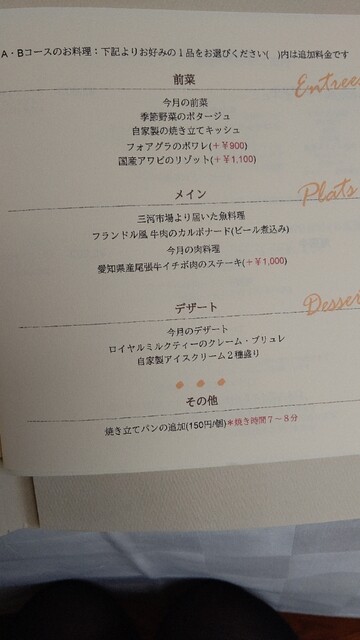 A・Bコースのお料理：下記よりお好みの１品をお選びください(　)内は追加料金です
前菜
Entrees
今月の前菜
季節野菜のポタージュ
自家製の焼き立てキッシュ
フォアグラのポワレ(+￥900)
国産アワビのリゾット(+￥1,100)
メイン
Plats
三河市場より届いた魚料理
フランドル風 牛肉のカルボナード(ビール煮込み)
今月の肉料理
愛知県産尾張牛イチボ肉のステーキ(+￥1,000)
デザート
Desser
今月のデザート
ロイヤルミルクティーのクレーム・ブリュレ
自家製アイスクリーム２種盛り
その他
焼き立てパンの追加(150円/個)＊焼き時間７～８分